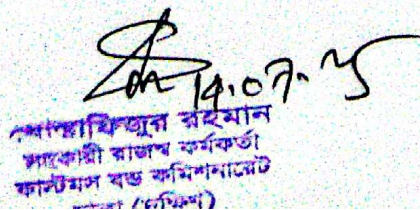 14.07.25
মোস্তাফিজুর রহমান
সহকারী রাজস্ব কর্মকর্তা
কাস্টমস বন্ড কমিশনারেট
ঢাকা (দক্ষিণ)